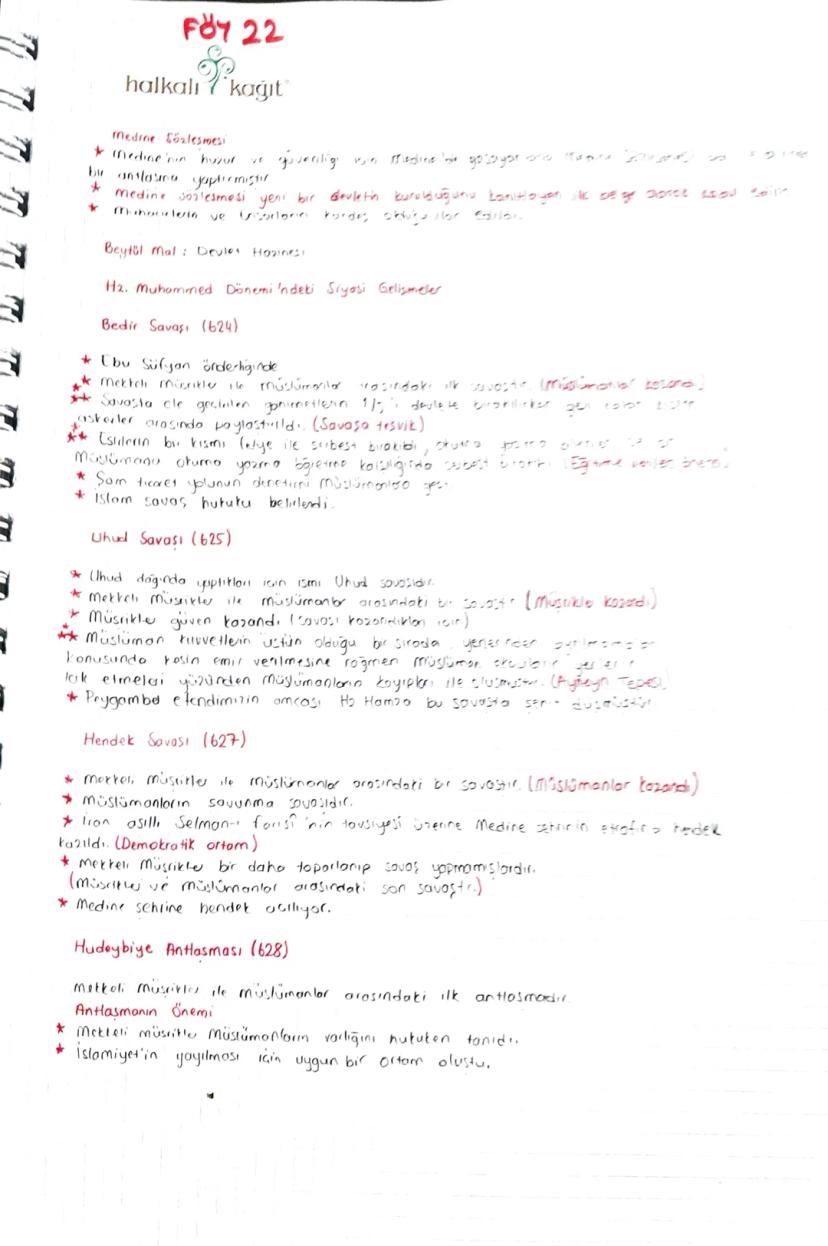 FÖY 22
halkalı kağıt
Medine Sözleşmesi
* Medine'nin huzur ve güvenliği için Medine'de
bir antlaşma yaptırmıştır
* Medine sözleşmesi yeni bir devletin kurulduğunu kanıtlayan ilk belge olarak kabul
* Muhacirlerin ve Ensarların kardeş olduğu ilan
Beytül Mal : Devlet Hazinesi
Hz. Muhammed Dönemi'ndeki Siyasi Gelişmeler
Bedir Savaşı (624)
* Ebu Süfyan önderliğinde
* Mekkeli müşrikler ile müslümanlar arasındaki ilk savaştır (Müslümanlar kazandı)
** Savaşta ele geçirilen ganimetlerin 1/5'i devlete bırakılırken geri kalan
askerler arasında paylaştırıldı. (Savaşa teşvik)
** Esirlerin bir kısmı fidye ile serbest bırakıldı, okuma yazma
Müslümana okuma yazma öğretme karşılığında serbest
* Şam ticaret yolunun denetimi müslümanlara
* İslam savaş hukuku belirlendi.
Uhud Savaşı (625)
* Uhud dağında yaptıkları için ismi Uhud savaşıdır.
* Mekkeli müşrikler ile müslümanlar arasındaki bir savaştır (Müşrikler kazandı)
* Müşrikler güven kazandı (savaşı kazandıkları için)
** Müslüman kuvvetlerin üstün olduğu bir sırada, yerlerinden ayrılmamalar
konusunda kesin emir verilmesine rağmen müslüman okçuların yerlerini
terk etmeleri yüzünden müslümanların kayıpları ile oluşmuştur. (Ayneyn Tepesi)
* Peygamber efendimizin amcası Hz Hamza bu savaşta şehit düşmüştür
Hendek Savaşı (627)
* Mekkeli müşrikler ile müslümanlar arasındaki bir savaştır. (Müslümanlar kazandı)
* Müslümanların savunma savaşıdır.
* İran asıllı Selman-ı Farisi'nin tavsiyesi üzerine Medine şehrinin etrafına hendek
kazıldı. (Demokratik ortam)
* Mekkeli Müşrikler bir daha toparlanıp savaş yapmamışlardır.
(Müşrikler ve müslümanlar arasındaki son savaştır.)
* Medine şehrine hendek açılıyor.
Hudeybiye Antlaşması (628)
Mekkeli müşrikler ile müslümanlar arasındaki ilk antlaşmadır.
Antlaşmanın Önemi
* Mekkeli müşrikler Müslümanların varlığını hukuken tanıdı.
* İslamiyet'in yayılması için uygun bir ortam oluştu.